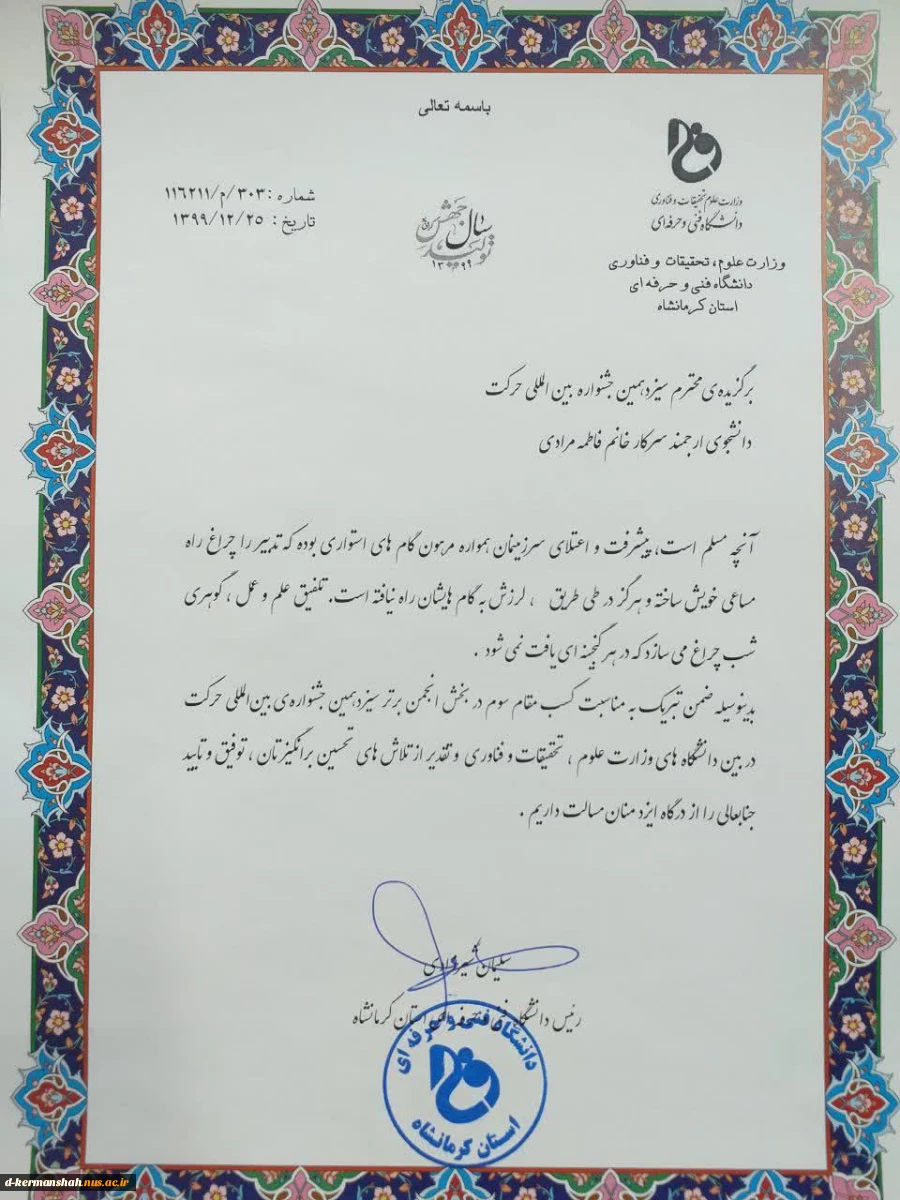 باسمه تعالی
وزارت علوم تحقیقات و فناوری
دانشگاه فنی و حرفه ای
وزارت علوم، تحقیقات و فناوری
دانشگاه فنی و حرفه ای
استان کرمانشاه
شماره : ۳۰۳/م/۱۱۶۲۱۱
تاریخ : ۱۳۹۹/۱۲/۲۵
سال جهش
تولید
۱۳۹۹
برگزیده‌ی محترم سیزدهمین جشنواره بین المللی حرکت
دانشجوی ارجمند سرکار خانم فاطمه مرادی
آنچه مسلم است، پیشرفت و اعتلای سرزمینمان همواره مرهون گام های استواری بوده که تدبیر را چراغ راه
مساعی خویش ساخته و هرگز در طی طریق ، لرزش به گام هایشان راه نیافته است. تلفیق علم و عمل ، گوهری
شب چراغ می سازد که در هر گنجینه ای یافت نمی شود .
بدینوسیله ضمن تبریک به مناسبت کسب مقام سوم در بخش انجمن برتر سیزدهمین جشنواره‌ی بین‌المللی حرکت
در بین دانشگاه های وزارت علوم ، تحقیقات و فناوری و تقدیر از تلاش های تحسین برانگیزتان ، توفیق و تایید
جنابعالی را از درگاه ایزد منان مسالت داریم .
سلیمان
رئیس دانشگاه فنی و حرفه ای استان کرمانشاه
دانشگاه فنی و حرفه ای
استان کرمانشاه
d-kermanshah.nus.ac.ir